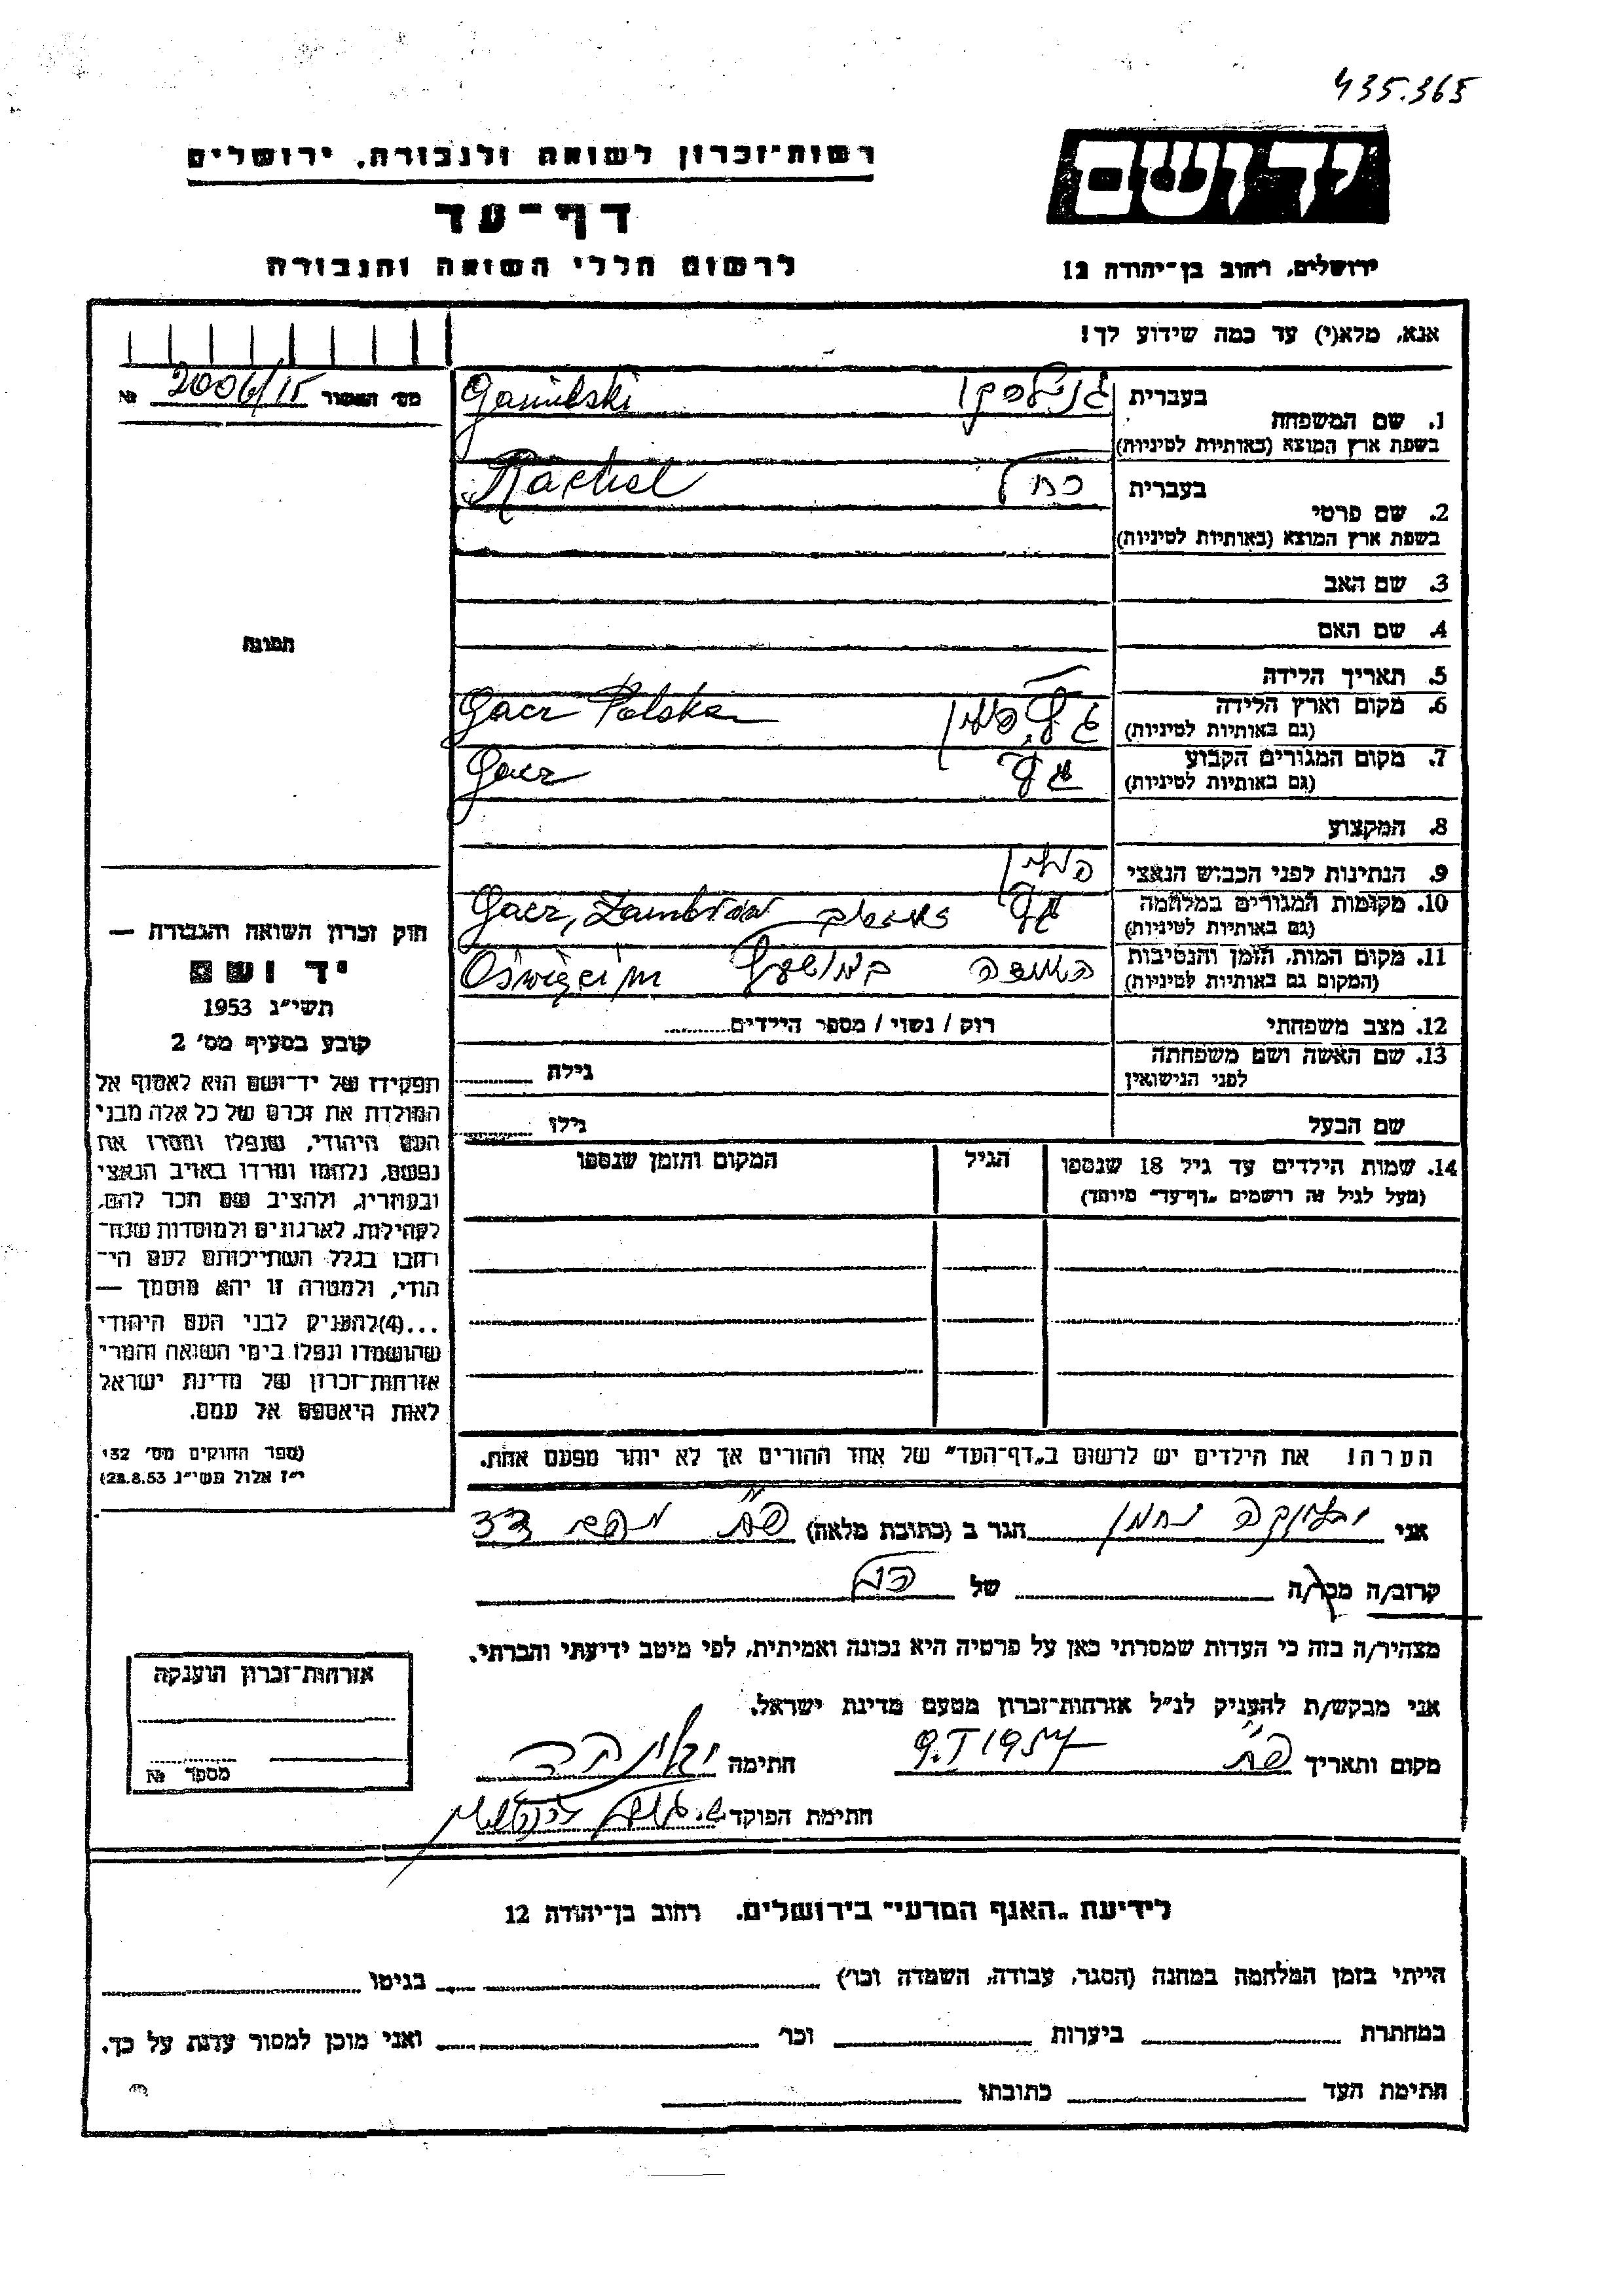 435.365
יד ושם
רשות־זכרון לשואה ולגבורה, ירושלים
דף־עד
ירושלים, רחוב בן־יהודה 12
לרשום חללי השואה והגבורה
אנא, מלא(י) עד כמה שידוע לך!
מס׳ האסור 2006/15 №
1. שם המשפחה
בעברית
בשפת ארץ המוצא (באותיות לטיניות)
2. שם פרטי
בעברית רחל Rachel
בשפת ארץ המוצא (באותיות לטיניות)
3. שם האב
4. שם האם
תמונה
5. תאריך הלידה —
6. מקום וארץ הלידה Polska
(גם באותיות לטיניות)
7. מקום המגורים הקבוע
(גם באותיות לטיניות)
8. המקצוע
9. הנתינות לפני הכבוש הנאצי פולין
10. מקומות המגורים במלחמה
(גם באותיות לטיניות)
11. מקום המות, הזמן והנסיבות Oświęcim
(המקום גם באותיות לטיניות)
12. מצב משפחתי רוק / נשוי / מספר הילדים
13. שם האשה ושם משפחתה
לפני הנישואין גילה
שם הבעל גילו
14. שמות הילדים עד גיל 18 שנספו הגיל המקום והזמן שנספו
(מעל לגיל זה רושמים „דף־עד״ מיוחד)
חוק זכרון השואה והגבורה —
יד ושם
תשי״ג 1953
קובע בסעיף מס׳ 2
תפקידו של יד־ושם הוא לאסוף אל
המולדת את זכרם של כל אלה מבני
העם היהודי, שנפלו ומסרו את
נפשם, נלחמו ומרדו באויב הנאצי
ובעוזריו, ולהציב שם וזכר להם,
לקהילות, לארגונים ולמוסדות שנח־
רבו בגלל השתייכותם לעם הי־
הודי, ולמטרה זו יהא מוסמך —
...(4)להעניק לבני העם היהודי
שהושמדו ונפלו בימי השואה והמרי
אזרחות־זכרון של מדינת ישראל
לאות היאספם אל עמם.
(ספר החוקים מס׳ 132
י״ז אלול תשי״ג 28.8.53)
הערה! את הילדים יש לרשום ב„דף־העד״ של אחד ההורים אך לא יותר מפעם אחת.
אני נחמן הגר ב (כתובת מלאה) פ״ת
קרוב/ה מכר/ה של רחל
מצהיר/ה בזה כי העדות שמסרתי כאן על פרטיה היא נכונה ואמיתית, לפי מיטב ידיעתי והכרתי.
אני מבקש/ת להעניק לנ״ל אזרחות־זכרון מטעם מדינת ישראל.
מקום ותאריך פ״ת 9.I 1957 חתימה
חתימת הפוקד
אזרחות־זכרון הוענקה
מספר №
לידיעת „האגף המדעי״ בירושלים, רחוב בן־יהודה 12
הייתי בזמן המלחמה במחנה (הסגר, עבודה, השמדה וכו׳) בגיטו
במחתרת ביערות וכו׳ ואני מוכן למסור עדות על כך.
חתימת העד כתובתו